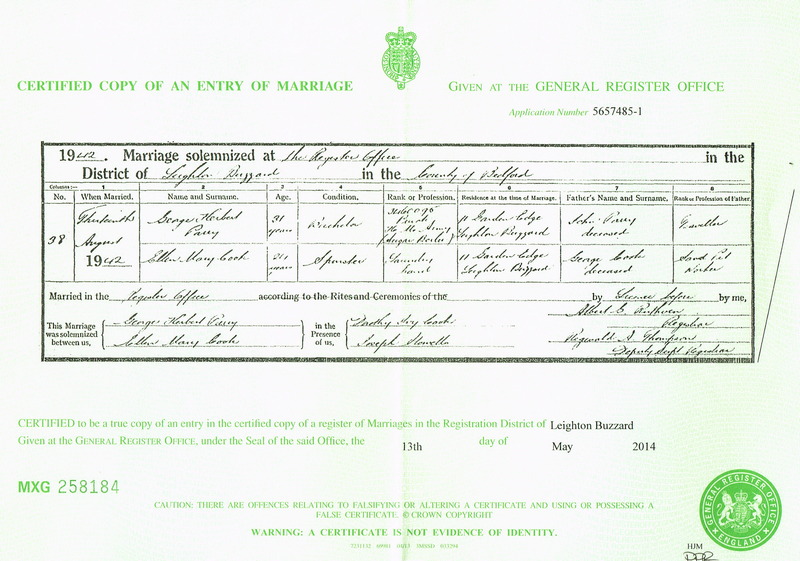 CERTIFIED COPY OF AN ENTRY OF MARRIAGE
GIVEN AT THE GENERAL REGISTER OFFICE
Application Number 5657485-1
1942. Marriage solemnized at The Register Office in the
District of Leighton Buzzard in the County of Bedford
Columns:— 1 2 3 4 5 6 7 8
No. When Married. Name and Surname. Age. Condition. Rank or Profession. Residence at the time of Marriage. Father's Name and Surname. Rank or Profession of Father.
38 Thirteenth August 1942
George Herbert Perry 31 years Bachelor 11 Garden Edge Leighton Buzzard John Perry deceased
Ellen Mary Cook 21 years Spinster Laundry hand 11 Garden Edge Leighton Buzzard George Cook deceased Sand Pit Worker
Married in the Register Office according to the Rites and Ceremonies of the by Licence before by me,
This Marriage was solemnized between us,
George Herbert Perry
Ellen Mary Cook
in the Presence of us,
Dorothy Ivy Cook
Joseph
Albert E. Ruffhead
Registrar
Reginald A. Thompson
Deputy Supt Registrar
CERTIFIED to be a true copy of an entry in the certified copy of a register of Marriages in the Registration District of Leighton Buzzard
Given at the GENERAL REGISTER OFFICE, under the Seal of the said Office, the 13th day of May 2014
MXG 258184
CAUTION: THERE ARE OFFENCES RELATING TO FALSIFYING OR ALTERING A CERTIFICATE AND USING OR POSSESSING A
FALSE CERTIFICATE. © CROWN COPYRIGHT
WARNING: A CERTIFICATE IS NOT EVIDENCE OF IDENTITY.
GENERAL REGISTER OFFICE
ENGLAND
HJM